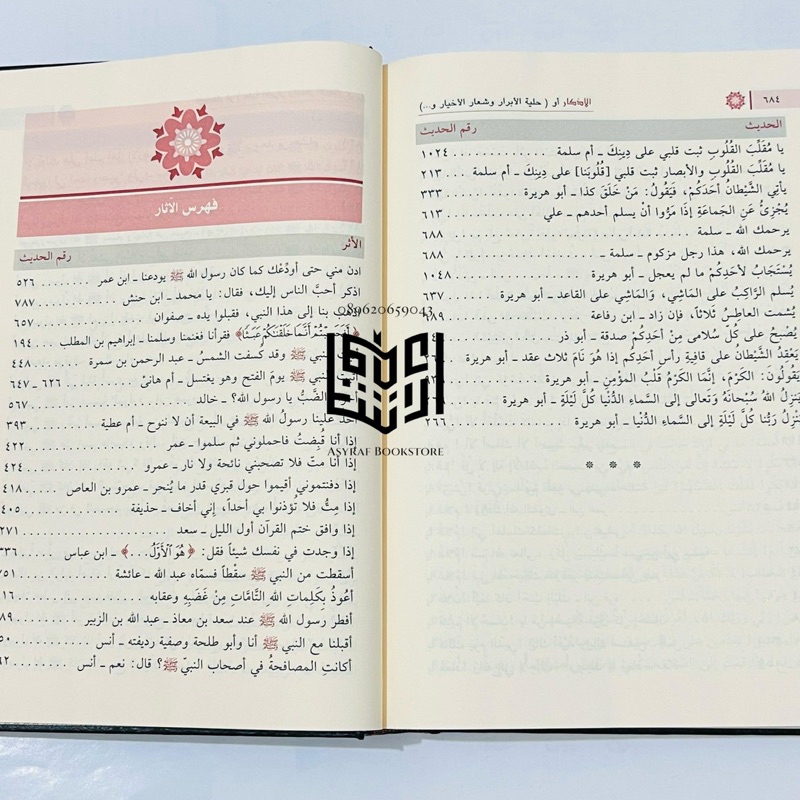 ٦٨٤
الأذكار أو ( حلية الأبرار وشعار الأخيار و...)
الحديث رقم الحديث
يا مُقلِّبَ القُلُوبِ ثبت قلبي على دِينِكَ ـ أم سلمة ........... ١٠٢٤
يا مُقَلِّبَ القُلُوبِ والأبصار ثبت قلبي [قُلُوبَنا] على دِينِكَ ـ أم سلمة ... ٢١٣
يأتي الشَّيْطانُ أحَدَكُمْ، فَيَقُولُ: مَنْ خَلَقَ كذا ـ أبو هريرة ........... ٣٣٣
يُجْزِئُ عَنِ الجَماعَةِ إذَا مَرُّوا أنْ يسلم أحدهم ـ علي ........... ٦١٣
يرحمك الله ـ سلمة ........... ٦٨٨
يرحمك الله، هذا رجل مزكوم ـ سلمة ـ ........... ٦٨٨
يُسْتَجَابُ لأحَدِكُمْ ما لم يعجل ـ أبو هريرة ........... ١٠٤٨
يُسلم الرَّاكِبُ على المَاشِي، وَالمَاشِي على القاعد ـ أبو هريرة ........... ٦٣٧
يُشمت العاطِسُ ثلاثاً، فإن زاد ـ ابن رفاعة ........... ٦٨٩
يُصْبحُ على كُلّ سُلامى مِنْ أحَدِكُمْ صدقة ـ أبو ذر
يَعْقِدُ الشَّيْطانُ على قافِيةِ رأسِ أحدِكُم إذا هُوَ نَامَ ثلاث عقد ـ أبو هريرة
يَقُولُونَ: الكَرْمَ، إنَّمَا الكَرْمُ قَلْبُ المؤمِنِ ـ أبو هريرة
يَنزِلُ اللهُ سُبحانَهُ وَتَعالى إلى السَّماءِ الدُّنْيا كُلَّ لَيْلَةٍ ـ أبو هريرة
يَنْزِلُ رَبُّنا كُلَّ لَيْلَةٍ إلى السَّماءِ الدُّنْيا ـ أبو هريرة ........... ٢٦٦
فهرس الآثار
الأثر رقم الحديث
ادن مني حتى أودِّعْك كما كان رسول الله ﷺ يودعنا ـ ابن عمر ... ٥٢٦
اذكر أحبَّ الناس إليك، فقال: يا محمد ـ ابن حنش ........... ٧٨٧
بنا إلى هذا النبي، فقبلوا يده ـ صفوان ........... ٦٥٧
﴿أَفَحَسِبْتُمْ أَنَّمَا خَلَقْنَاكُمْ عَبَثًا﴾ فقرأنا فغنمنا وسلمنا ـ إبراهيم بن المطلب ١٩٤
النبي ﷺ وقد كسفت الشمسُ ـ عبد الرحمن بن سمرة ٤٤٨
أتيت النبي ﷺ يومَ الفتح وهو يغتسل ـ أم هانئ ... ٦٢٦ ـ ٦٤٧
الضَّبُّ يا رسول الله؟ ـ خالد ........... ٥٦٧
أخذ علينا رسولُ الله ﷺ في البيعة أن لا ننوح ـ أم عطية ... ٣٩٣
إذا أنا قُبِضتُ فاحملوني ثم سلموا ـ عمر ........... ٤٢٢
إذا أنا متّ فلا تصحبني نائحة ولا نار ـ عمرو ........... ٤٢٤
إذا دفنتموني أقيموا حول قبري قدر ما يُنحر ـ عمرو بن العاص ... ٤١٨
إذا مِتُّ فلا تُؤذنوا بي أحداً، إني أخاف ـ حذيفة ........... ٤٠٥
إذا وافق ختم القرآن أول الليل ـ سعد ........... ٢٧١
إذا وجدت في نفسك شيئاً فقل: ﴿هُوَ ٱلْأَوَّلُ...﴾ ـ ابن عباس ... ٣٣٦
أسقطت من النبي ﷺ سقْطاً فسمّاه عبد الله ـ عائشة ...........
أعُوذُ بِكَلِماتِ اللهِ التَّامَّاتِ مِنْ غَضَبِهِ وعقابه ...........
أفطر رسول الله ﷺ عند سعد بن معاذ ـ عبد الله بن الزبير ...
أقبلنا مع النبي ﷺ أنا وأبو طلحة وصفية رديفته ـ أنس ...
أكانتِ المصافحةُ في أصحاب النبيّ ﷺ؟ قال: نعم ـ أنس ...
089620659043
ASYRAF BOOKSTORE